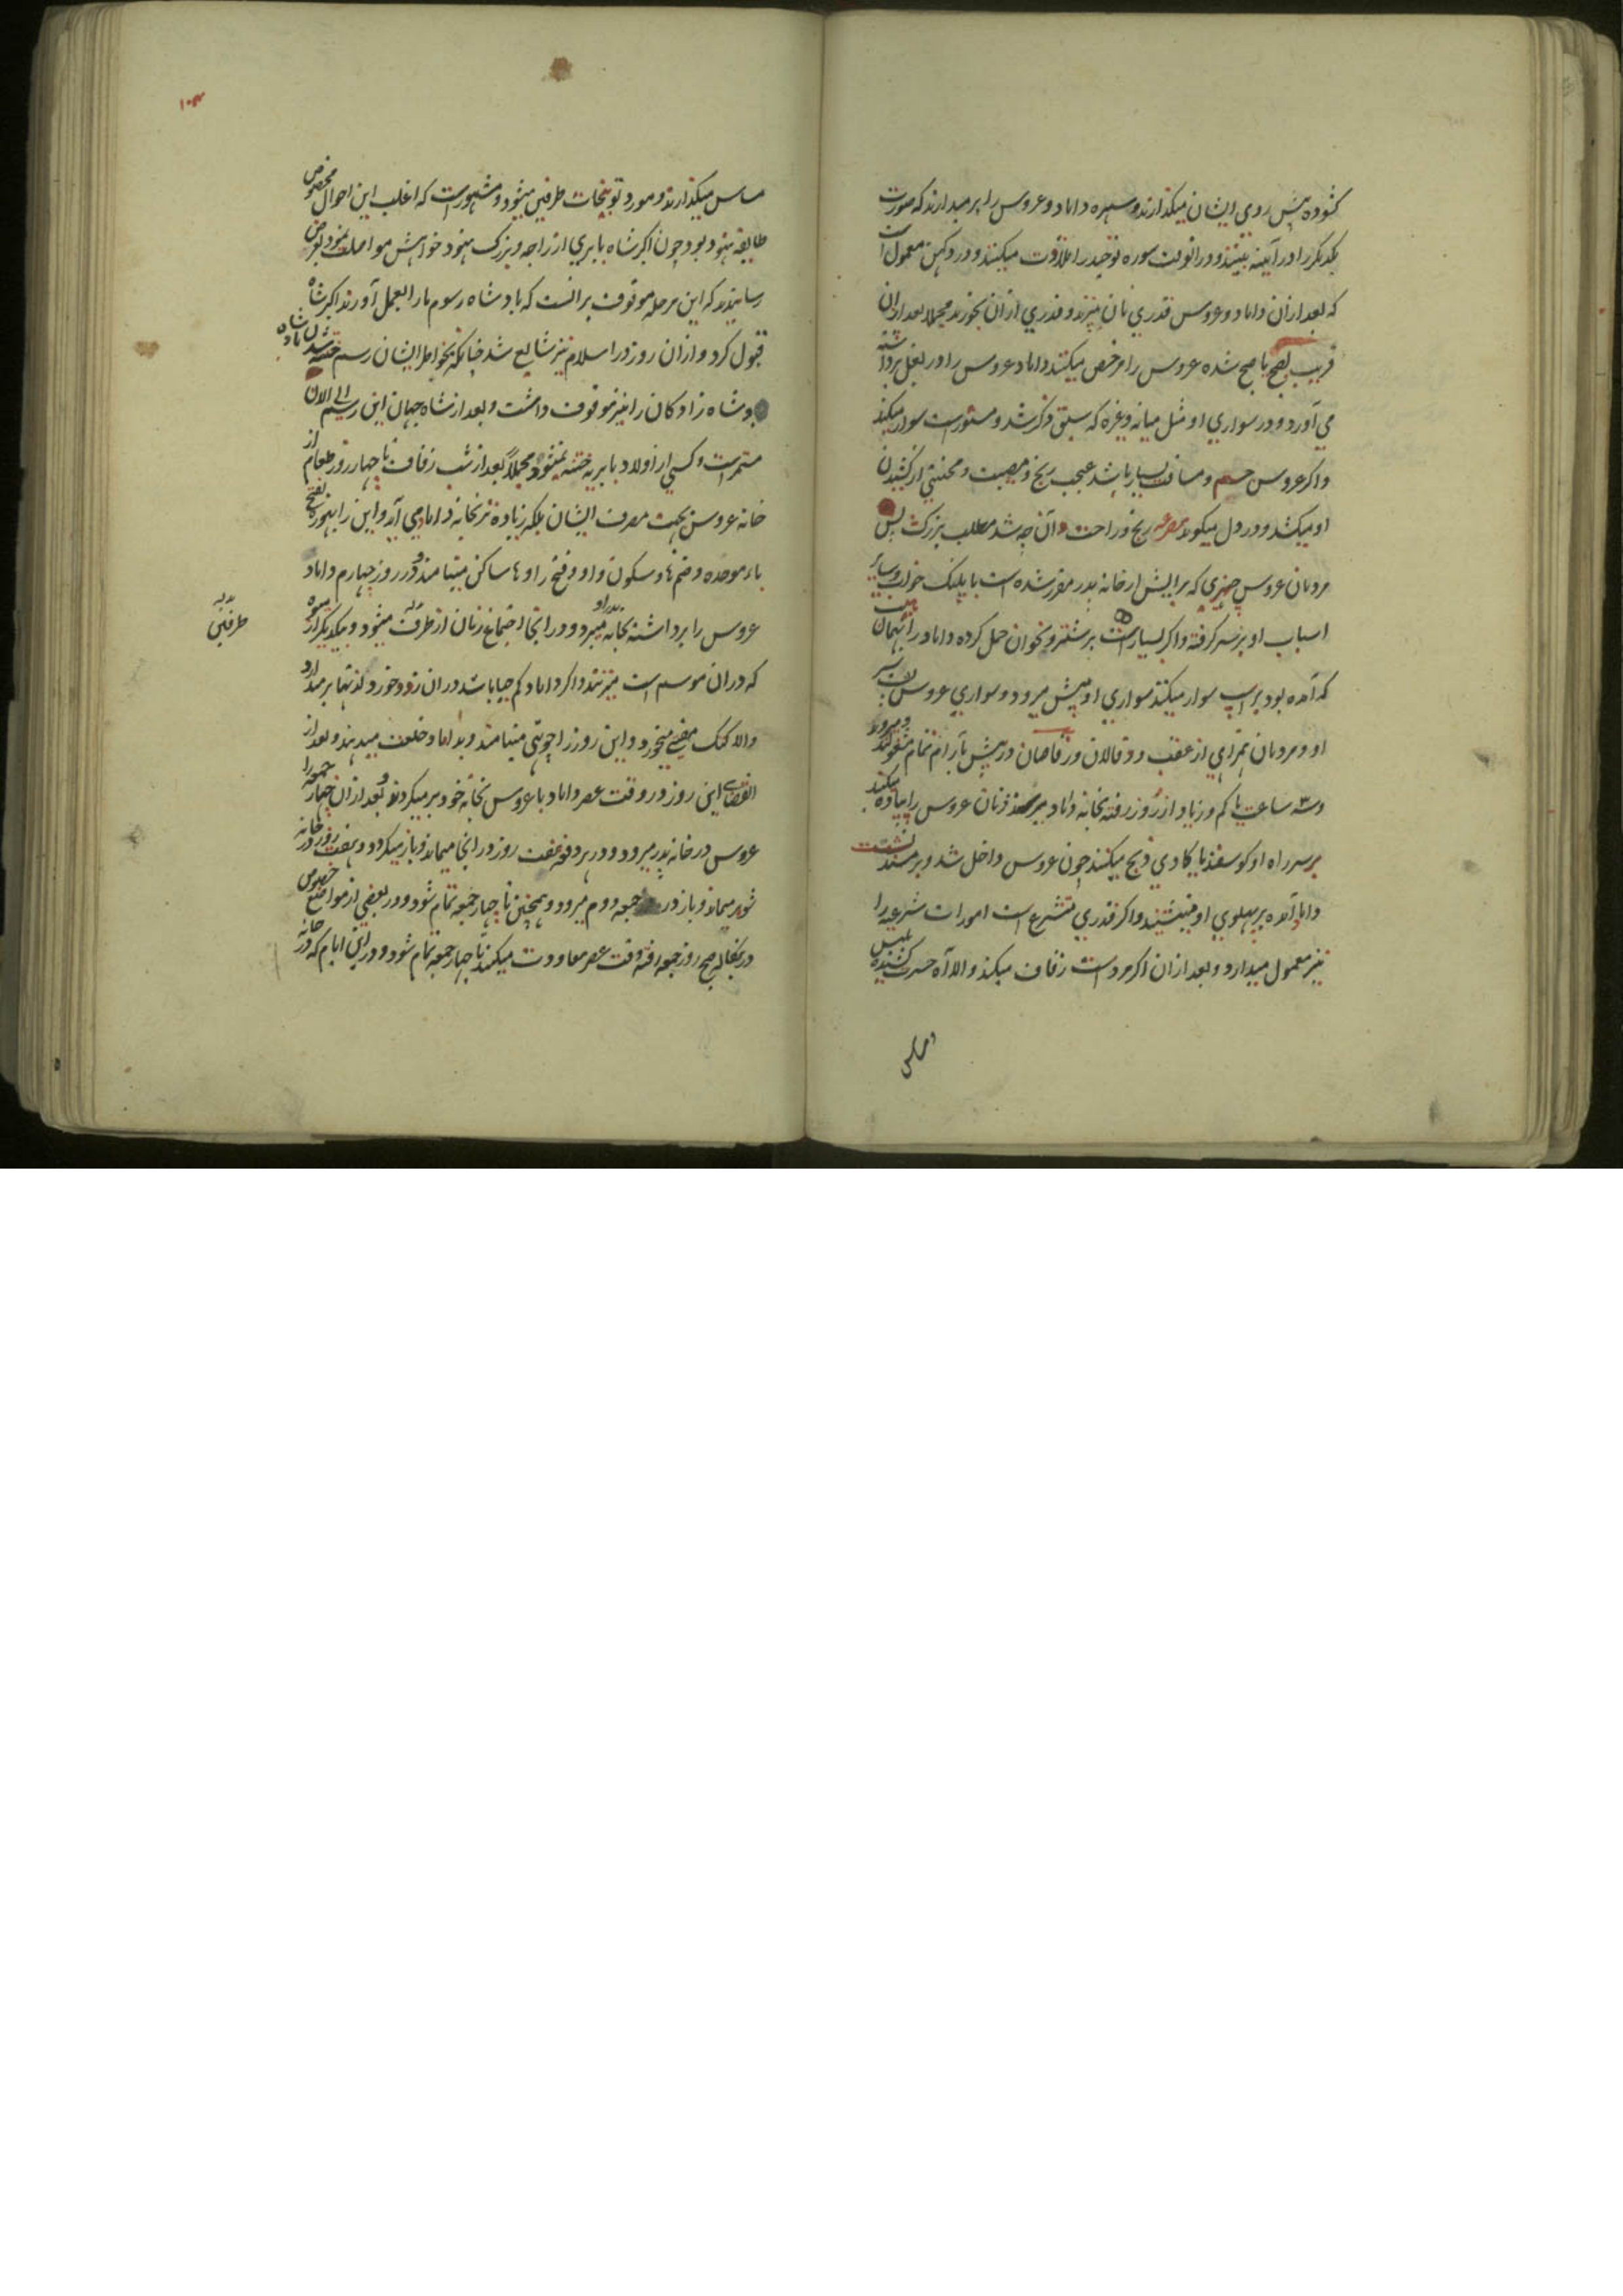 کشوده پیش روی ایشان میکذارند و سهره داماد و عروس را برمیدارند که صورت
یکدیکر را در آینه ببینند و در انوقت سوره توحید را تلاوت میکنند و در دکهن معمول است
که بعد ازان داماد و عروس قدری نان میپزند و قدری ازان بخورند مجملا بعد ازان
قریب بصبح یا صبح شده عروس را مرخص میکنند داماد عروس را در بغل برداشته
می آورد و در سواری او مثل میانه و غیره که سبق ذکر شد و مستورست سوار میکند
و اکر عروس جسیم و مسافت بسیار باشد عجب رنج و مصیبت و محنتی از کشیدن
او میکشد و در دل میکوید مصرعه رنج و راحت دان چه شد مطلب بزرکست پس
مردمان عروس جهیزی که برایش از خانه پدر مقرر شده است با پلنک خواب و سایر
اسباب او بر سر کرفته و اکر بسیار است بر شتر و نحو ان حمل کرده داماد را بهمان
که آمده بود بر اسپ سوار میکنند سواری او پیش میرود و سواری عروس
او و مردمان همراهی از عقب و قالان و رقاصان در پیش بآرام تمام مشغولند و میروند
و سه ساعت یا کم و زیاد از روز رفته بخانه داماد میرسند و زنان عروس را پیاده میکنند
بر سر راه او کوسفند یا کاوی ذبح میکنند چون عروس داخل شد و بر مسند نشست
داماد آمده بر پهلوی او مینشیند و اکر قدری متشرع است امورات شرعیه را
نیز معمول میدارد و بعد ازان اکر مرد است زفاف میکند و الا آه حسرت کشیده
مساس میکذارند و مورد توبیخات طرفین میشود و مشهورست که اغلب این احوال مخصوص
طایفه هنود بود چون اکبر شاه بابری از راجه و بزرک هنود خواهش مواصلت نمود بعرض
رسانیدند که این مرحله موقوف برانست که بادشاه رسوم ما را بعمل آورند اکبر شاه
قبول کرد و ازان روز در اسلام نیز شایع شد چنانکه بخواطر ایشان رسم ختنه شدن
بادشاه زادکان را نیز موقوف داشت و بعد از شاه جهان این رسم الی الان
مستمر است و کسی از اولاد بابریه ختنه نمیشود مجملا بعد از شب زفاف تا چهار روز طعام از
خانه عروس بجهت مصرف ایشان بلکه زیاده تر بخانه داماد می آید و این را بهوره بفتح
باء موحده و ضم ها و سکون واو و فتح را و ها ساکن مینامند و در روز چهارم داماد
عروس را برداشته بخانه پدر او میبرد و در انجا اجتماع زنان از طرفین میشود و یکدیکر را از میوه
که دران موسم است میزنند و اکر داماد کم حیا باشد دران زد و خورد لذتها برمیدارد
والا کتک مفتی میخورد و این روز را چوتهی مینامند و بداماد خلعت میدهند و بعد از
انقضای این روز در وقت عصر داماد با عروس بخانه خود برمیکردند و بعد ازان چهار جمعه را
عروس در خانه پدر میرود و در هر دفعه هفت روز در انجا میماند و باز میکردد و هفت روز در خانه
شوهر میماند و باز در جمعه دوم میرود و همچنین تا چهار جمعه تمام شود و در بعضی از مواضع خصوص
در بنکاله صبح روز جمعه رفته وقت عصر معاودت میکند تا چهار جمعه تمام شود و در این ایام که در خانه
طرفین